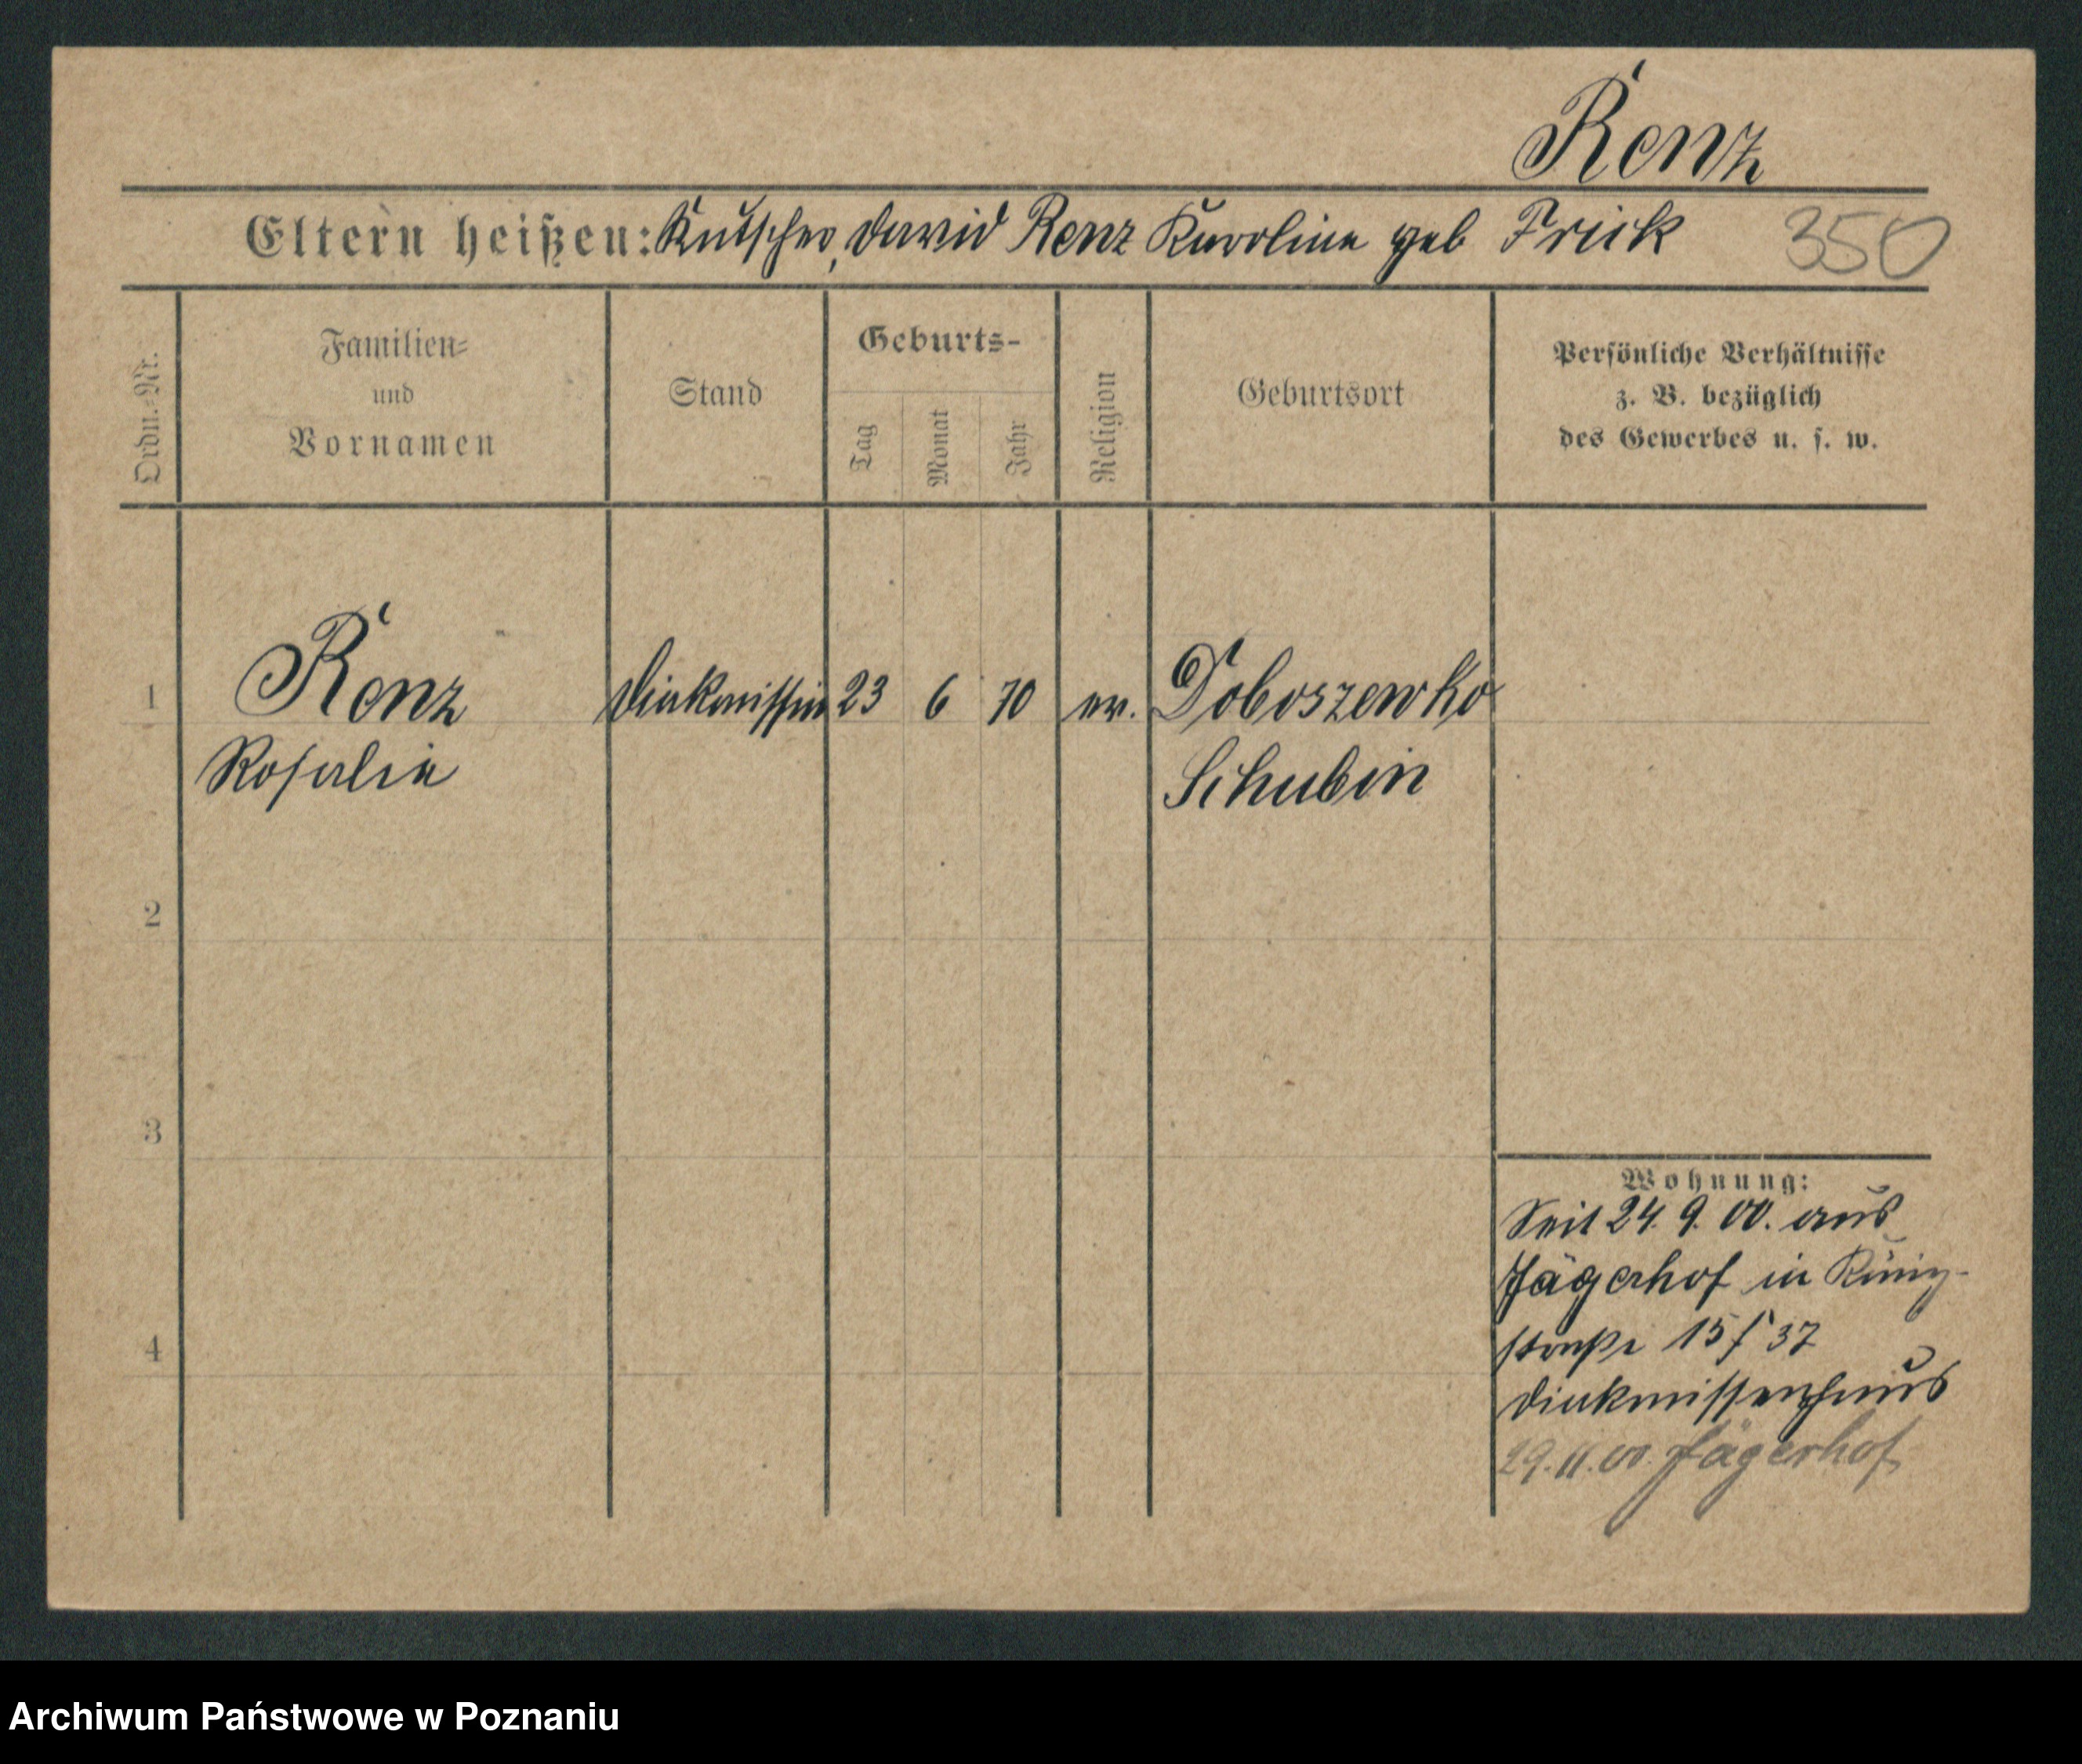 Renz
Eltern heißen: Kutscher, David Renz Karoline geb Frick
350
Ordn.-Nr.
Familien-
und
Vornamen
Stand
Geburts-
Tag
Monat
Jahr
Religion
Geburtsort
Persönliche Verhältnisse
z. B. bezüglich
des Gewerbes u. s. w.
1 Renz Diakonissin 23 6 70 ev. Doboszewko
Rosalie Schubin
2
3
4
Wohnung:
Seit 24. 9. 00. aus
Jägerhof in König-
straße 15/37
Diakonissenhaus
29.11.00. Jägerhof
Archiwum Państwowe w Poznaniu